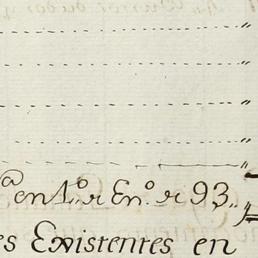 "
"
"
"
"
a en 1.º de En.º de 93,,
es Existentes en